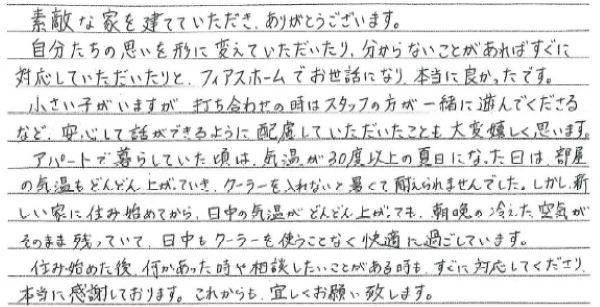 素敵な家を建てていただき、ありがとうございます。
自分たちの思いを形に変えていただいたり、分からないことがあればすぐに
対応していただいたりと、フィアスホームでお世話になり、本当に良かったです。
小さい子がいますが、打ち合わせの時はスタッフの方が一緒に遊んでくださる
など、安心して話ができるように配慮していただいたことも大変嬉しく思います。
アパートで暮らしていた頃は、気温が30度以上の夏日になった日は、部屋
の気温もどんどん上がっていき、クーラーを入れないと暑くて耐えられませんでした。しかし、新
しい家に住み始めてから、日中の気温がどんどん上がっても、朝晩の冷えた空気が
そのまま残っていて、日中もクーラーを使うことなく快適に過ごしています。
住み始めた後、何かあった時や相談したいことがある時も、すぐに対応してくださり、
本当に感謝しております。これからも、宜しくお願い致します。